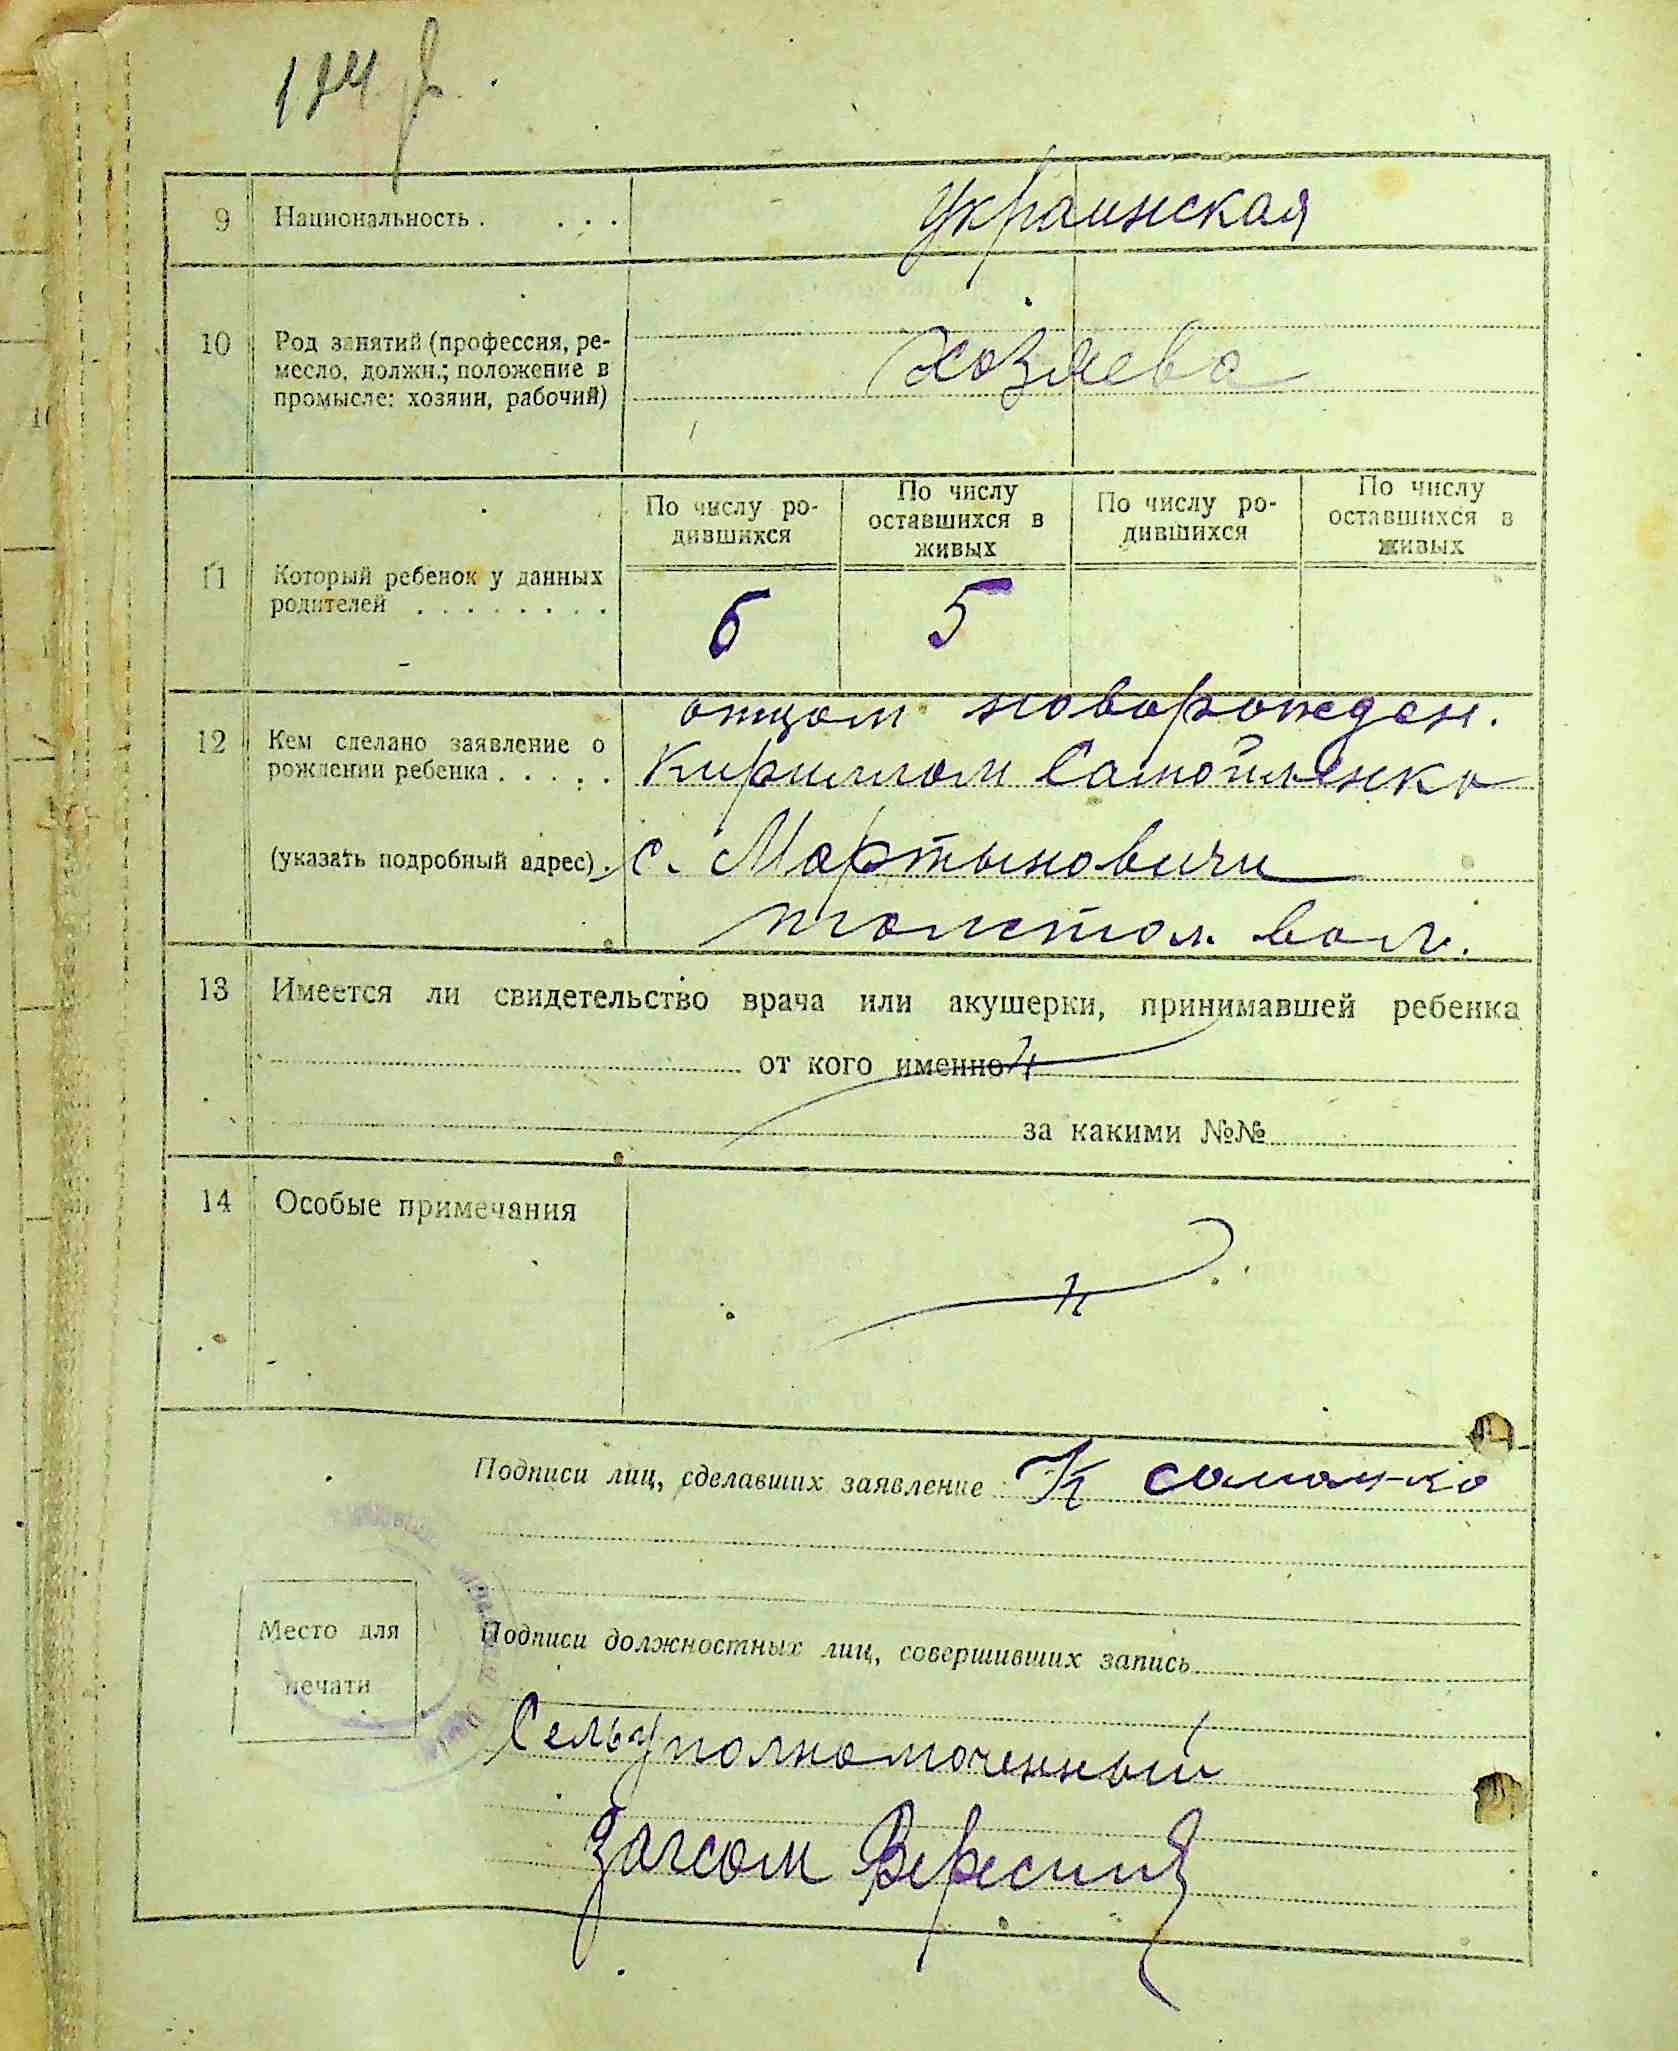 9 Национальность . . . . украинская
10 Род занятий (профессия, ре-
месло, должн.; положение в
промысле: хозяин, рабочий)
хозяева
По числу ро-
дившихся
По числу
оставшихся в
живых
По числу ро-
дившихся
По числу
оставшихся в
живых
11 Который ребенок у данных
родителей . . . . . . . .
6 5
отцом новорожден.
12 Кем сделано заявление о
рождении ребенка . . . . . Кириллом Самойленко
(указать подробный адрес) . с. Мартыновичи
толстол. вол.
13 Имеется ли свидетельство врача или акушерки, принимавшей ребенка
от кого именно
за какими №№
14 Особые примечания
Подписи лиц, сделавших заявление К
Место для
печати
Подписи должностных лиц, совершивших запись
Сельуполномоченный
загсом